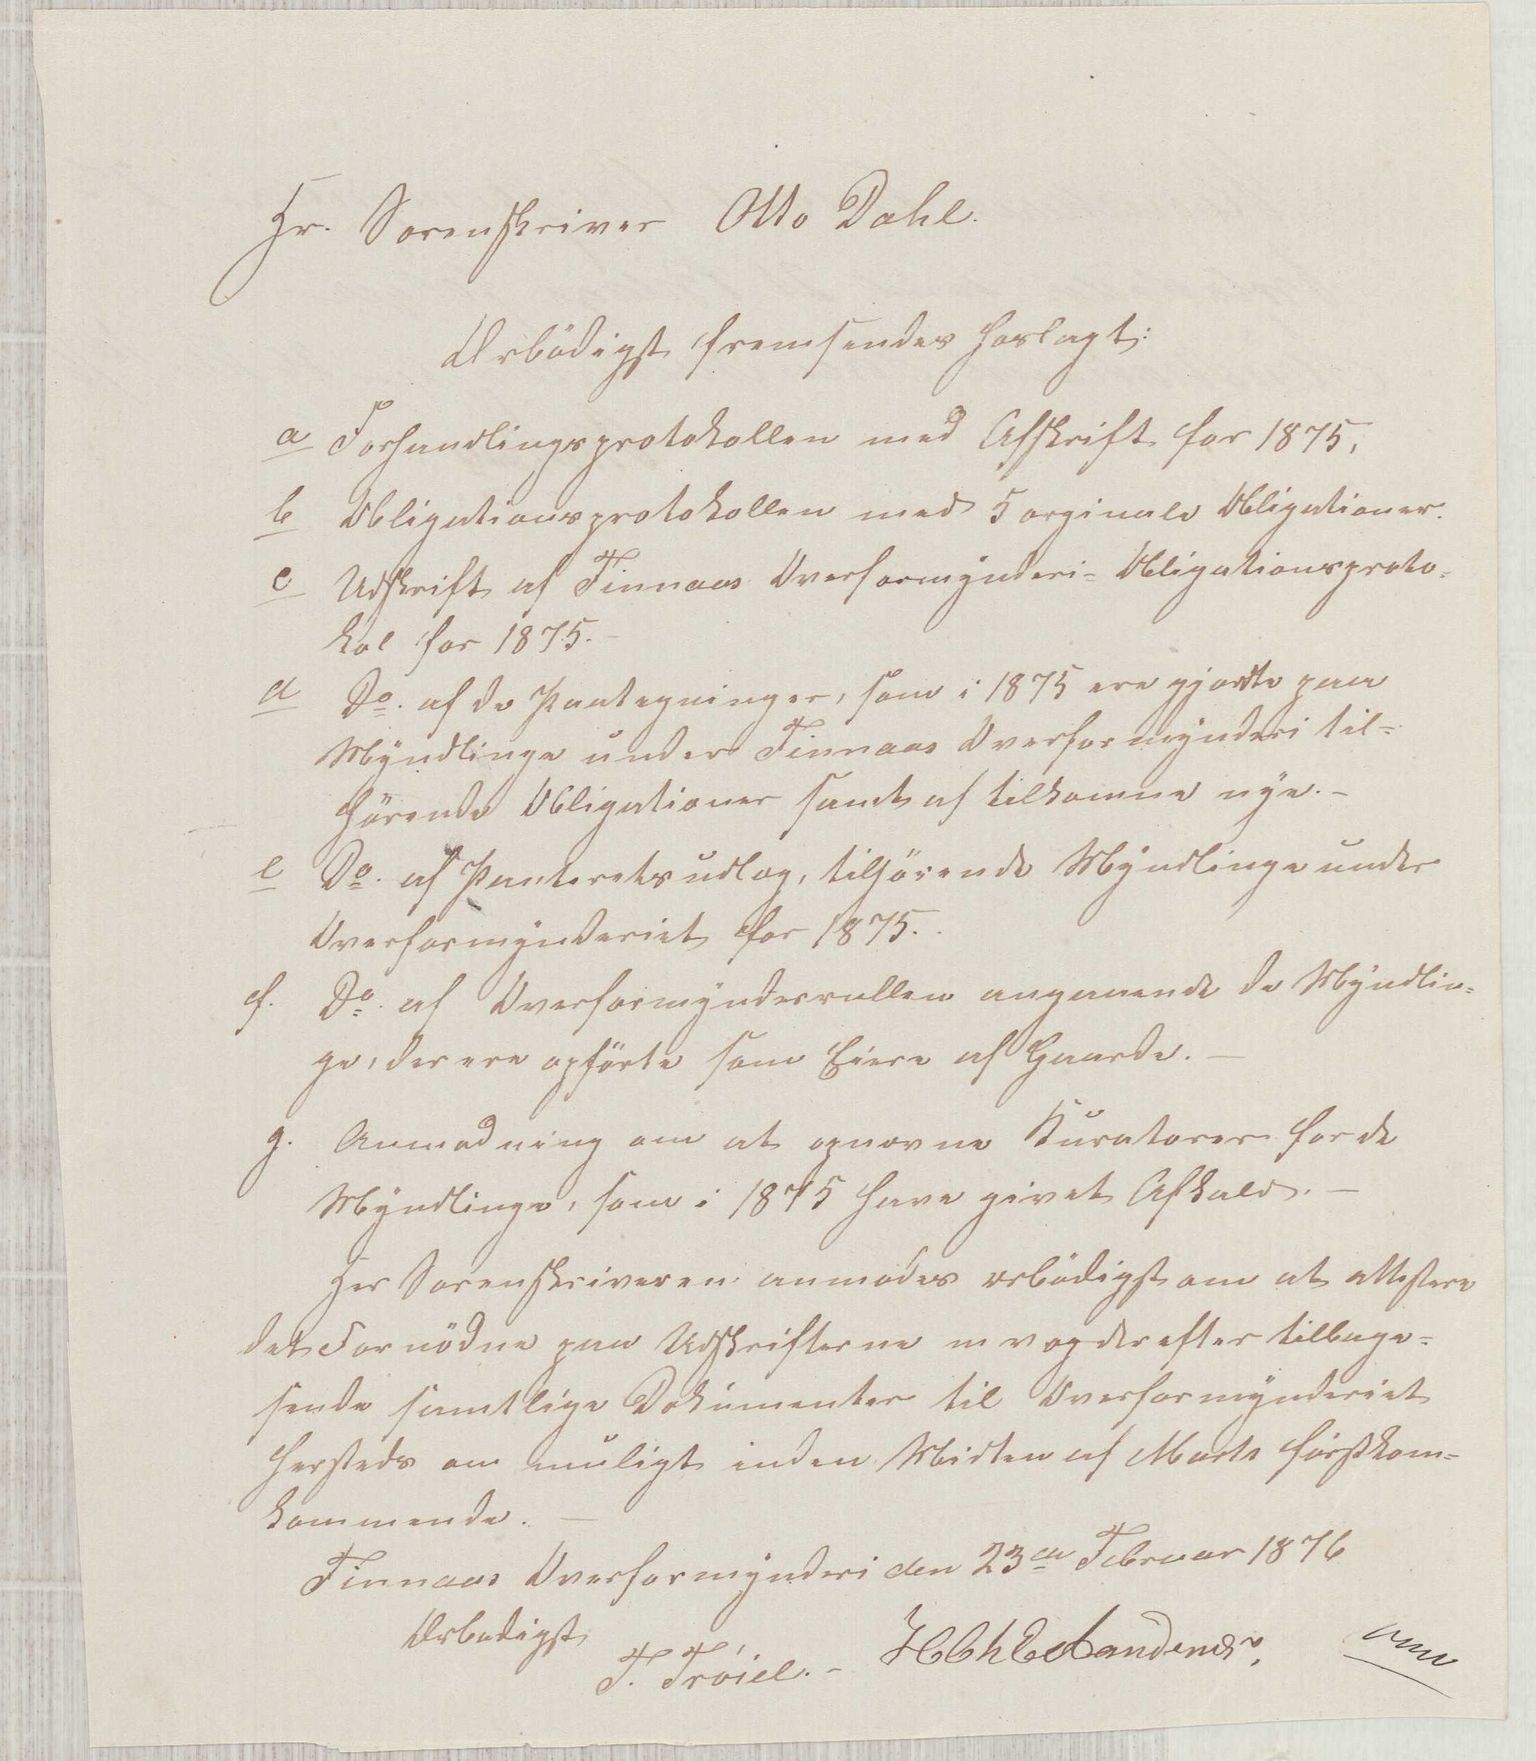 Hr. Sorenskriver Otto Dahl.
Ærbödigst fremsendes hoslagt:
a Forhandlingsprotokollen med Afskrift for 1875,
b Obligationsprotokollen med 5 orginale Obligationer.
c Udskrift af Finnaas Overformynderi- Obligationsproto-
kol for 1875.-
d Do. af de Paategninger, som i 1875 ere gjordte paa
Myndlinge under Finnaas Overformynderi til-
hörende Obligationer samt af tilkomne nye.-
e Do. af Panteretsudlæg, tilhörende Myndlinge under
Overformynderiet for 1875.
f. Do. af Overformynderrullen angaaende de Myndlin-
ge, der ere opförte som Eiere af Gaarde.-
g. Anmodning om at opnævne Kuratorer for de
Myndlinge, som i 1875 have givet Afkald.-
Her Sorenskriveren anmodes ærbödigst om at attestere
det Fornödne paa Udskrifterne m v og derefter tilbage-
sende samtlige Dokumenter til Overformynderiet
hersteds om muligt inden Midten af Marts förstkom-
kommende.-
Finnaas Overformynderi den 23de Februar 1876
Ærbödigst
F. Tröiel.-